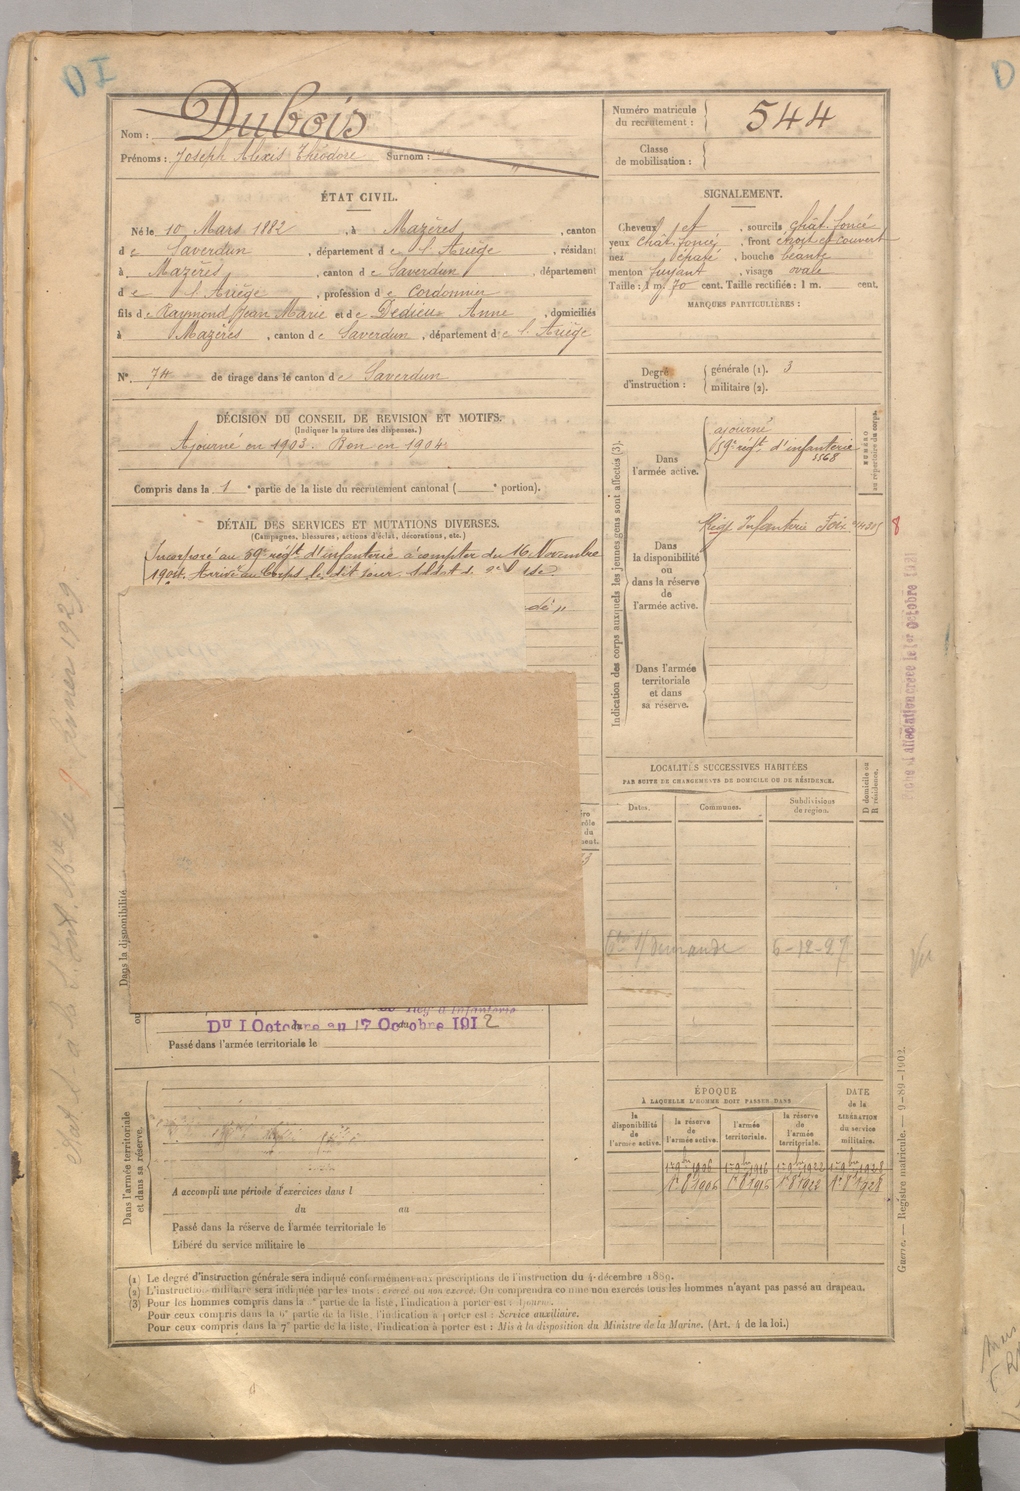 DI
Nom : Dubois
Prénoms : Joseph Alexis Théodore Surnom : "
Numéro matricule du recrutement : 544
Classe de mobilisation :
ÉTAT CIVIL.
Né le 10 Mars 1882, à Mazères, canton
de Saverdun, département de l'Ariège, résidant
à Mazères, canton de Saverdun, département
de l'Ariège, profession de Cordonnier
fils de Raymond Jean Marie et de Dedieu Anne, domiciliés
à Mazères, canton de Saverdun, département de l'Ariège
N° 74 de tirage dans le canton de Saverdun
SIGNALEMENT.
Cheveux , sourcils chât. foncé
yeux chât. foncé, front étroit et couvert
nez épaté, bouche béante
menton fuyant, visage ovale
Taille : 1 m. 70 cent. Taille rectifiée : 1 m. cent.
MARQUES PARTICULIÈRES :
Degré d'instruction : générale (1). 3
militaire (2).
DÉCISION DU CONSEIL DE REVISION ET MOTIFS.
(Indiquer la nature des dispenses.)
Ajourné en 1903. Bon en 1904.
Compris dans la 1e partie de la liste du recrutement cantonal ( e portion).
DÉTAIL DES SERVICES ET MUTATIONS DIVERSES.
(Campagnes, blessures, actions d'éclat, décorations, etc.)
Incorporé au 59e régt d'infanterie à compter du 16 Novembre
1904. Arrivé au Corps le dit jour. Soldat de 2e
Indication des corps auxquels les jeunes gens sont affectés (3).
NUMÉRO au répertoire du corps.
Dans l'armée active.
ajourné
59e régt d'infanterie
5568
Dans la disponibilité ou dans la réserve de l'armée active.
Rég. Infanterie Foix
8
Dans l'armée territoriale et dans sa réserve.
LOCALITÉS SUCCESSIVES HABITÉES
PAR SUITE DE CHANGEMENTS DE DOMICILE OU DE RÉSIDENCE.
Dates.
Communes.
Subdivisions de région.
D domicile ou R résidence.
Dans la disponibilité
Du 1 Octobre au 17 Octobre 1912
Passé dans l'armée territoriale le
Dans l'armée territoriale et dans sa réserve.
A accompli une période d'exercices dans l
du au
Passé dans la réserve de l'armée territoriale le
Libéré du service militaire le
ÉPOQUE
À LAQUELLE L'HOMME DOIT PASSER DANS
la disponibilité de l'armée active.
la réserve de l'armée active.
l'armée territoriale.
la réserve de l'armée territoriale.
DATE de la LIBÉRATION du service militaire.
1er 8bre 1906
(1) Le degré d'instruction générale sera indiqué conformément aux prescriptions de l'instruction du 4 décembre 1889.
(2) L'instruction militaire sera indiquée par les mots : exercé ou non exercé. On comprendra comme non exercés tous les hommes n'ayant pas passé au drapeau.
(3) Pour les hommes compris dans la partie de la liste, l'indication à porter est : Ajourné.
Pour ceux compris dans la partie de la liste, l'indication à porter est : Service auxiliaire.
Pour ceux compris dans la 7e partie de la liste, l'indication à porter est : Mis à la disposition du Ministre de la Marine. (Art. 4 de la loi.)
Guerre. — Registre matricule. — 9-89-1902.